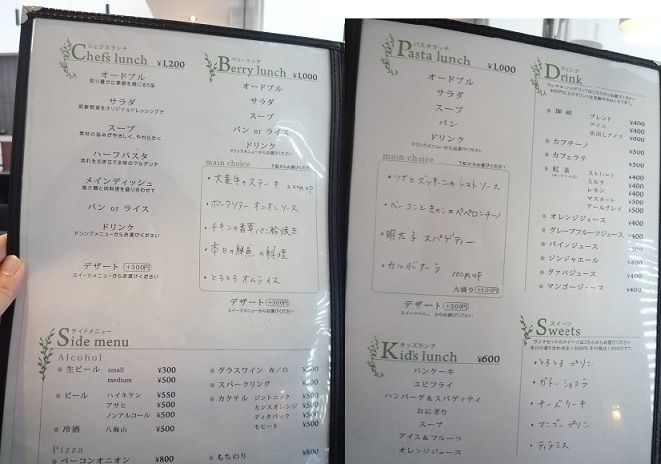 シェフズランチ
Chef's lunch ¥1,200
オードブル
サラダ
新鮮野菜をオリジナルドレッシングで
スープ
素材の旨みがやさしく、やわらかく
ハーフパスタ
メインディッシュ
魚介類と肉料理を盛り合わせて
パン or ライス
ドリンク
ドリンクメニューからお選びください
デザート +300円
スイーツメニューからお選びください
ベリーランチ
Berry lunch ¥1,000
オードブル
サラダ
スープ
パン or ライス
ドリンク
ドリンクメニューからお選びください
main choice 下記からお選びください
・大麦牛のステーキ 200円UP
・ポークソテー オニオンソース
・チキンの香草パン粉焼き
・本日の鮮魚の料理
・とろとろオムライス
デザート +300円
スイーツメニューからお選びください
サイドメニュー
Side menu
Alcohol
生ビール small ¥300
medium ¥500
ビール ハイネケン ¥550
アサヒ ¥500
ノンアルコール ¥500
冷酒 八海山 ¥500
グラスワイン 赤/白 ¥500
スパークリング ¥500
カクテル ジントニック ¥500
カシスオレンジ ¥500
ディタバック ¥500
モヒート ¥500
Pizza
ベーコンオニオン ¥800
もちのり ¥800
パスタランチ
Pasta lunch ¥1,000
オードブル
サラダ
スープ
パン
ドリンク
ドリンクメニューからお選びください
main choice 下記からお選びください
・ツナとズッキーニのトマトソース
・ベーコンときのこのペペロンチーノ
・明太子 スパゲティー
・カルボナーラ 100円UP
大盛り +100円
デザート +300円
スイーツメニューからお選びください
キッズランチ
Kid's lunch ¥600
パンケーキ
エビフライ
ハンバーグ＆スパゲッティ
おにぎり
スープ
アイス＆フルーツ
オレンジジュース
ドリンク
Drink
珈琲 ブレンド ¥400
アイス ¥400
水出しアイス ¥600
カプチーノ ¥500
カフェラテ ¥500
紅茶 ストレート ¥400
ミルク ¥400
レモン ¥400
マスカット ¥400
アールグレイ ¥400
オレンジジュース ¥400
グレープフルーツジュース ¥400
パインジュース ¥400
ジンジャエール ¥400
グァバジュース ¥400
マンゴージュース ¥400
スイーツ
Sweets
・とろとろプリン
・ガトーショコラ
・チーズケーキ
・マンゴープリン
・ティラミス